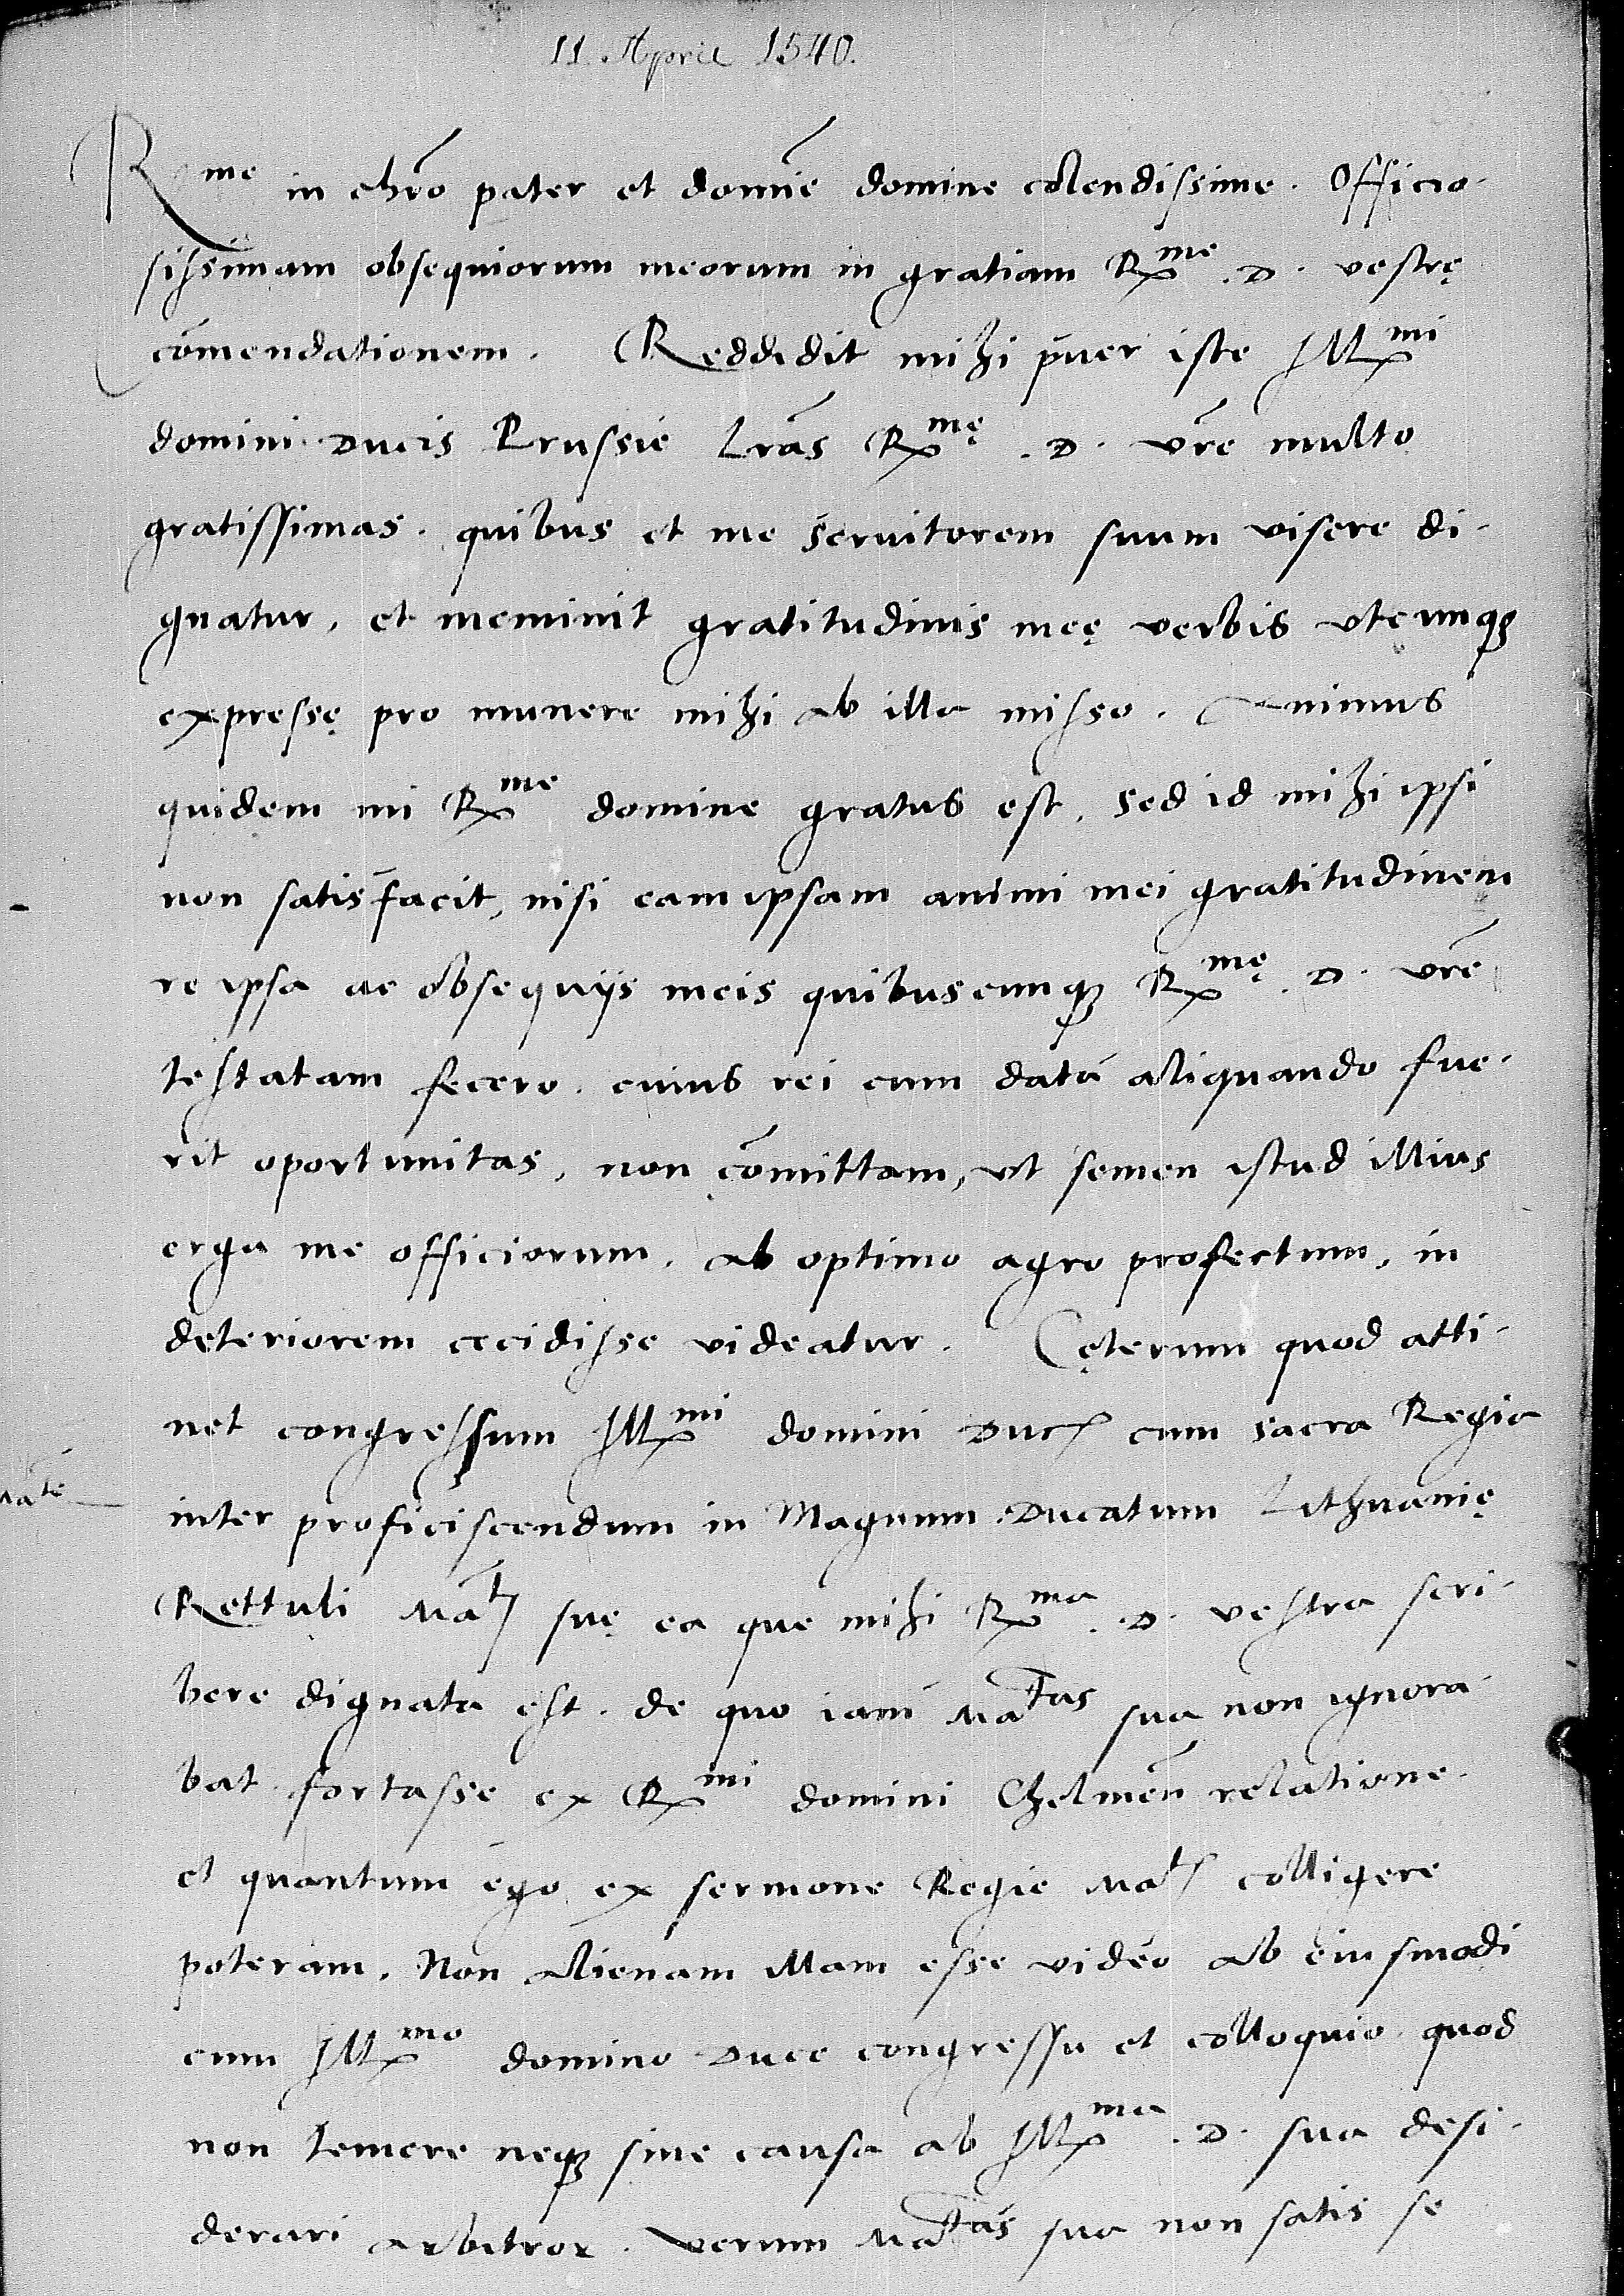 11. April 1540.
R me in chro pater et domie domine colendissime. Officio-
sissimam obsequiorum meorum in gratiam R me. D. vestrę
comendationem. Reddidit mihi puer iste Ill mi
domini Ducis Prussie Lras R mę. D. vre multo
gratissimas. quibus et me servitorem suum visere di-
gnatur, et meminit gratitudinis meę verbis utcunq
expressę pro munere mihi ab illa misso. Animus
quidem mi R me domine gratus est, sed id mihi ipsi
non satisfacit, nisi eam ipsam animi mei gratitudinem
re ipsa ac obsequijs meis quibuscunq R mę. D. vre
testatam fecero. cuius rei cum data aliquando fue-
rit oportunitas, non comittam, ut semen istud illius
erga me officiorum, ab optimo agro profectum, in
deteriorem cecidisse videatur. Cęterum quod atti-
net congressum Ill mi domini Ducis cum sacra Regia
Mate
inter proficiscendum in Magnum Ducatum Lithuanię
Rettuli Mati suę ea que mihi R ma. D. vestra scri-
bere dignata est. de quo iam Matas sua non ignora-
bat fortasse ex R mi domini Chelmen relatione.
et quantum ego ex sermone Regie Matis colligere
poteram. Non alienam illam esse video ab eiusmodi
cum Ill mo domino Duce congressu et colloquio. quod
non temere neq sine causa ab Ill ma. D. sua desi-
derari arbitror. Verum Matas sua non satis se